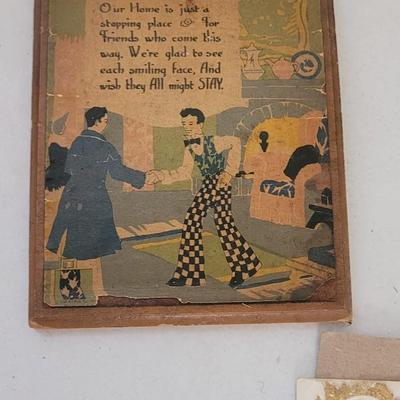 Our Home is just a
stopping place & for
friends who come this
way. We're glad to see
each smiling face, And
wish they All might STAY.